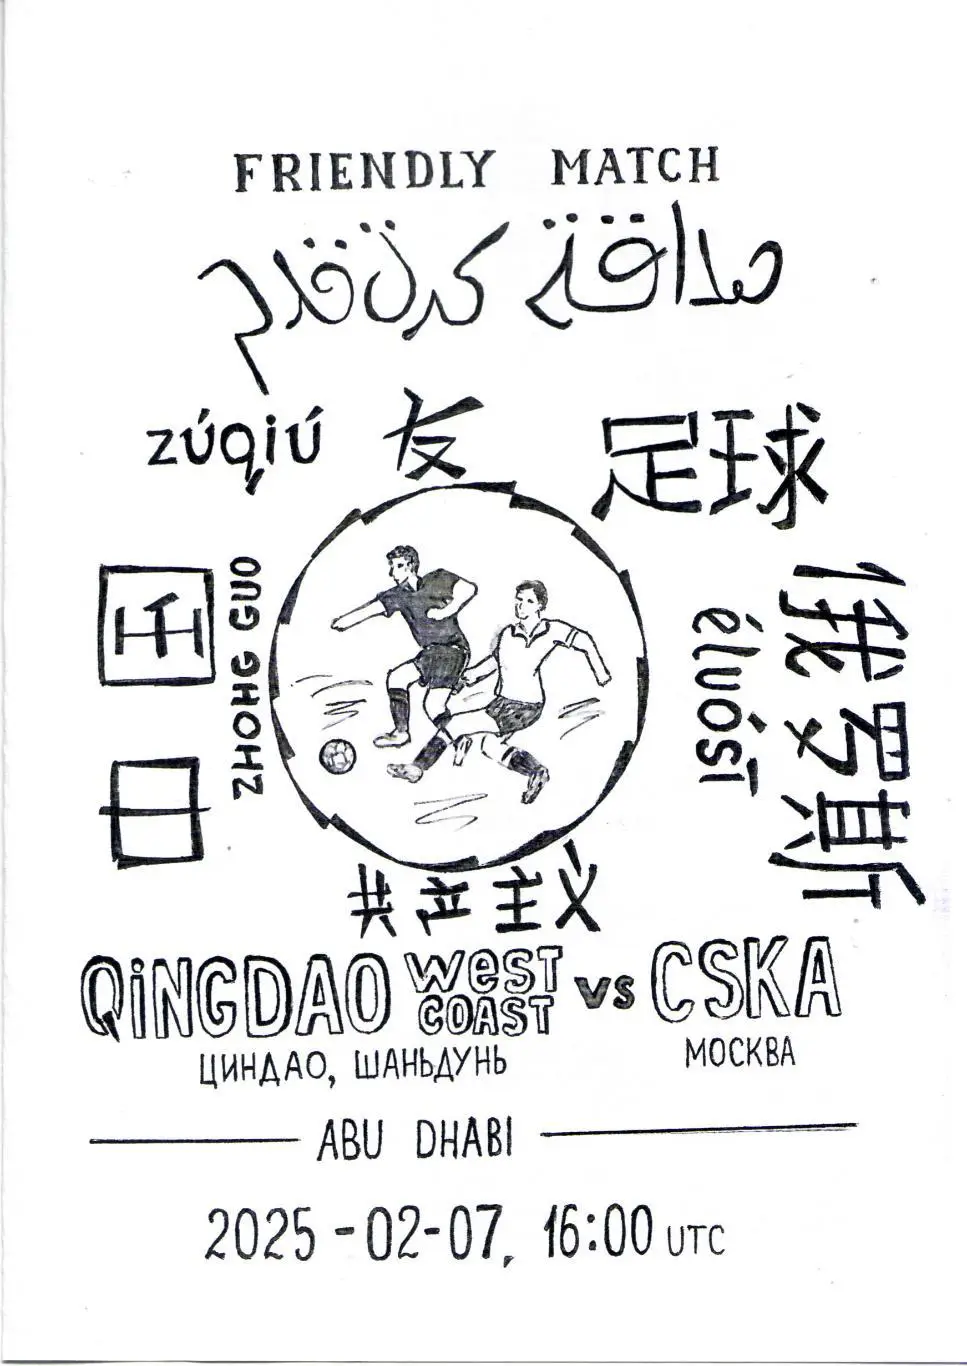 FRIENDLY MATCH
صداقة كرة قدم
zúqiú 友 足球
中国
ZHONG GUO
élúosī
俄罗斯
共产主义
QiNGDAO WeST COAST vs CSKA
ЦИНДАО, ШАНЬДУНЬ
МОСКВА
ABU DHABI
2025-02-07, 16:00 UTC